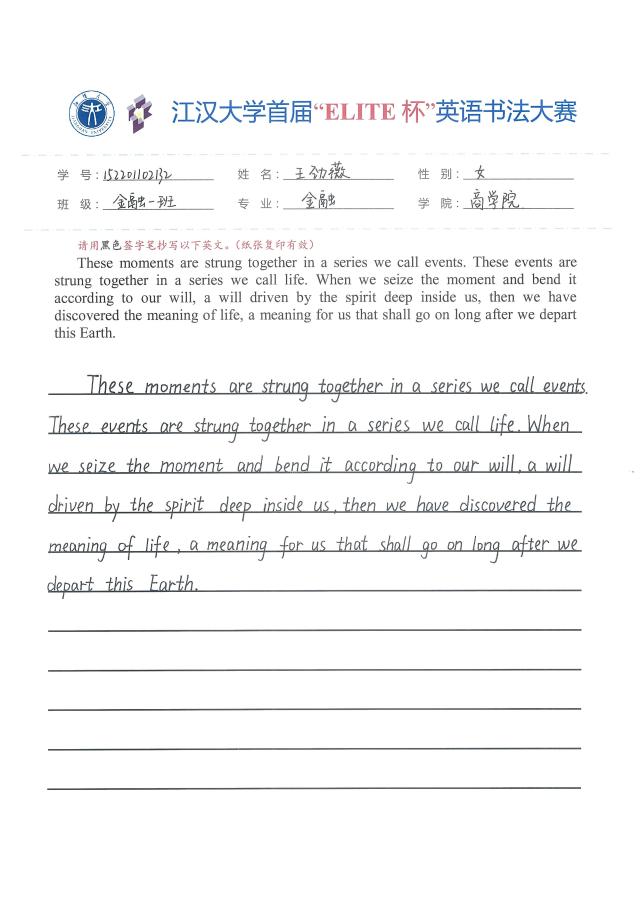 江汉大学首届“ELITE 杯”英语书法大赛
学 号：152201102132 姓 名：王劲薇 性 别：女
班 级：金融一班 专 业：金融 学 院：商学院
请用黑色签字笔抄写以下英文。（纸张复印有效）
These moments are strung together in a series we call events. These events are
strung together in a series we call life. When we seize the moment and bend it
according to our will, a will driven by the spirit deep inside us, then we have
discovered the meaning of life, a meaning for us that shall go on long after we depart
this Earth.
These moments are strung together in a series we call events.
These events are strung together in a series we call life. When
we seize the moment and bend it according to our will, a will
driven by the spirit deep inside us, then we have discovered the
meaning of life, a meaning for us that shall go on long after we
depart this Earth.